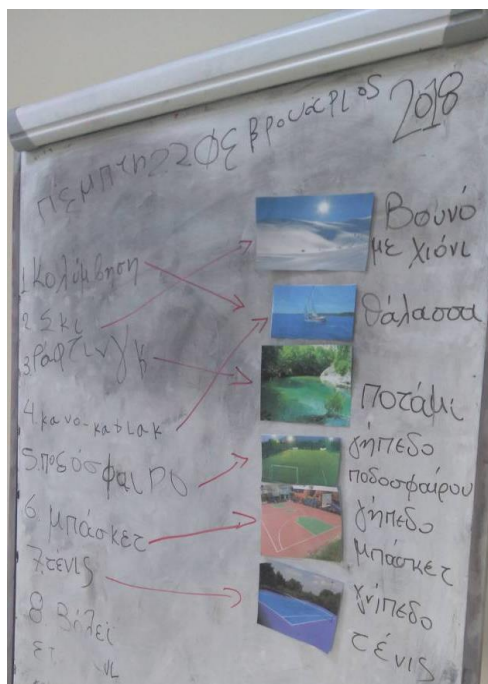 ΠέΜΠτη 22 ΦΕβρουάριος 2018
1. Κολύμβηση
2. Σκι
3. Ράφτινγκ
4. κανο-καγιακ
5. Ποδόσφαιρο
6. μπάσκετ
7. τένις
8 Βόλεϊ
Βουνό
με χιόνι
θάλασσα
ποτάμι
γήπεδο
ποδοσφαίρου
γήπεδο
μπάσκετ
γήπεδο
τένις